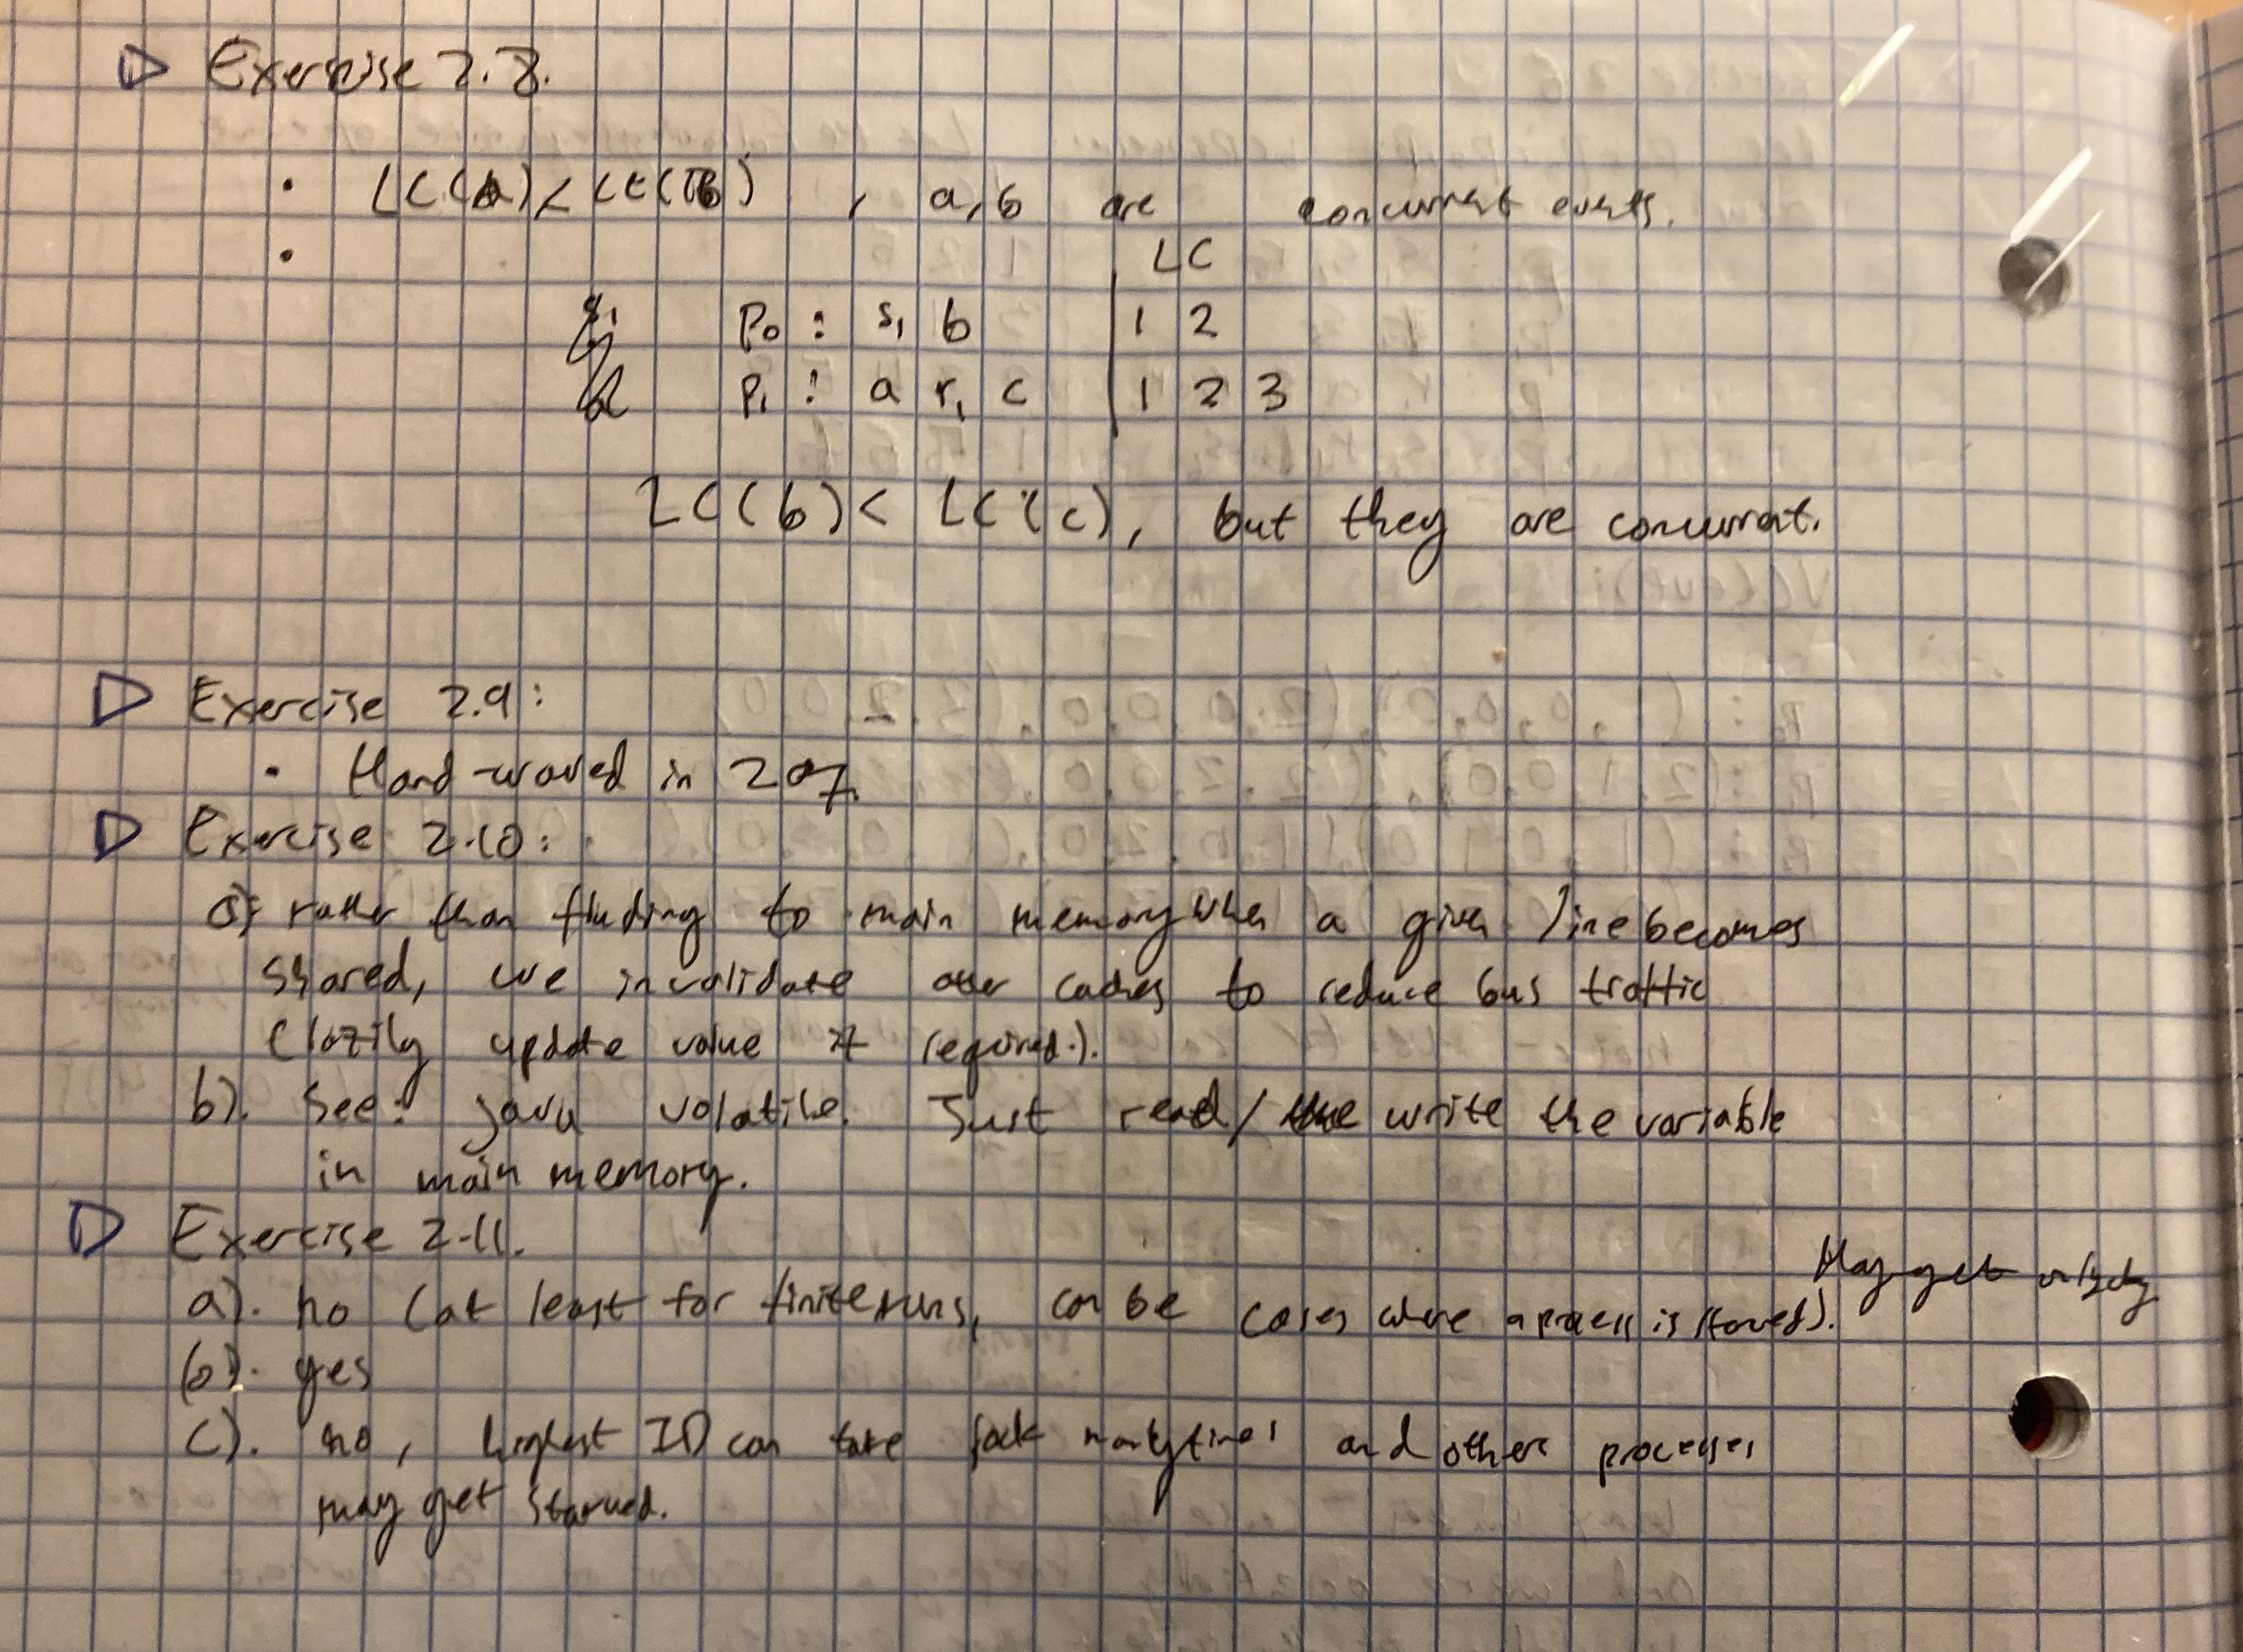 Exercise 2.8.
• LC(a) < LC(b) , a,b are concurrent events.
• LC
P₀ : s₁ b | 1 2
P₁ : a r₁ c | 1 2 3
LC(b) < LC(c), but they are concurrent.
Exercise 2.9:
• Hand-waved in 207.
Exercise 2.10:
a) rather than flushing to main memory when a given line becomes
shared, we invalidate other caches to reduce bus traffic
(lazily update value if required.).
b). See: java volatile. Just read/ write the variable
in main memory.
Exercise 2.11.
May get unlucky
a). no (at least for finite runs, can be cases where a process is starved).
(b). yes
c). no, highest ID can take lock many times and other processes
may get starved.